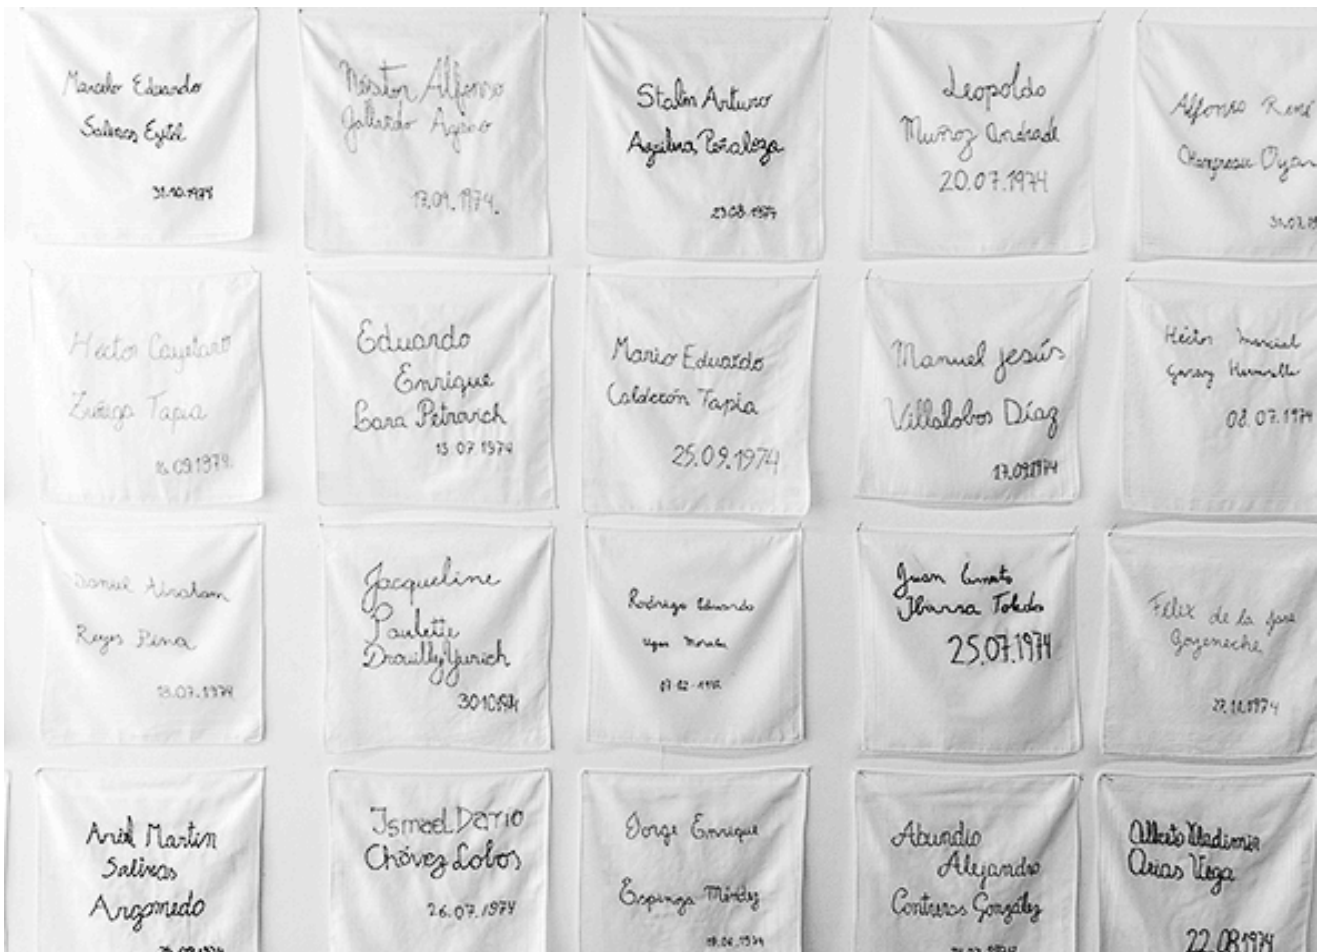 Marcelo Eduardo
Salinas Eytel
31.10.1974
Néstor Alfonso
Gallardo Agüero
17.09.1974.
Stalin Arturo
Aguilera Peñaloza
Leopoldo
Muñoz Andrade
20.07.1974
Alfonso René
Héctor Cayetano
Zuñiga Tapia
16.09.1974
Eduardo
Enrique
Lara Petrovich
15.07.1974
Mario Eduardo
Calderón Tapia
25.09.1974
Manuel Jesús
Villalobos Díaz
17.09.1974
Héctor Marcial
Garay Hermosilla
08.07.1974
Daniel Abraham
Reyes Pina
13.07.1974
Jacqueline
Paulette
Drouilly Yurich
30101974
Rodrigo Eduardo
Ugas Morales
Juan Ernesto
Ibarra Toledo
25.07.1974
Félix de la Jara
Goyeneche
27.11.1974
Ariel Martin
Salinas
Argomedo
Ismael Darío
Chávez Lobos
26.07.1974
Jorge Enrique
Espinoza Méndez
18.06.1974
Abundio
Alejandro
Contreras González
Alberto Vladimir
Arias Vega
22.08.1974